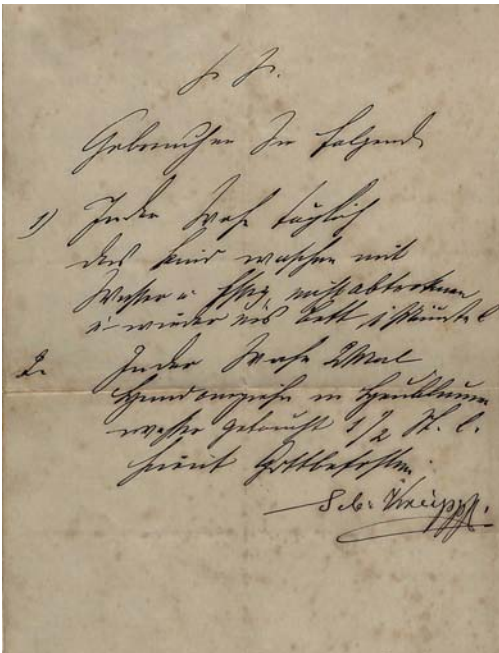 Gebrauchen Sie folgend
1) In der Woche täglich
das Kind waschen mit
Wasser u Essig, nicht abtrocknen
u wieder ins Bett
2. In der Woche 2 Mal
Hemd anziehn in Heublumen
wasser getaucht 1/2 St. l.
hiemit Gottbefohlen.
Seb. Kneipp.